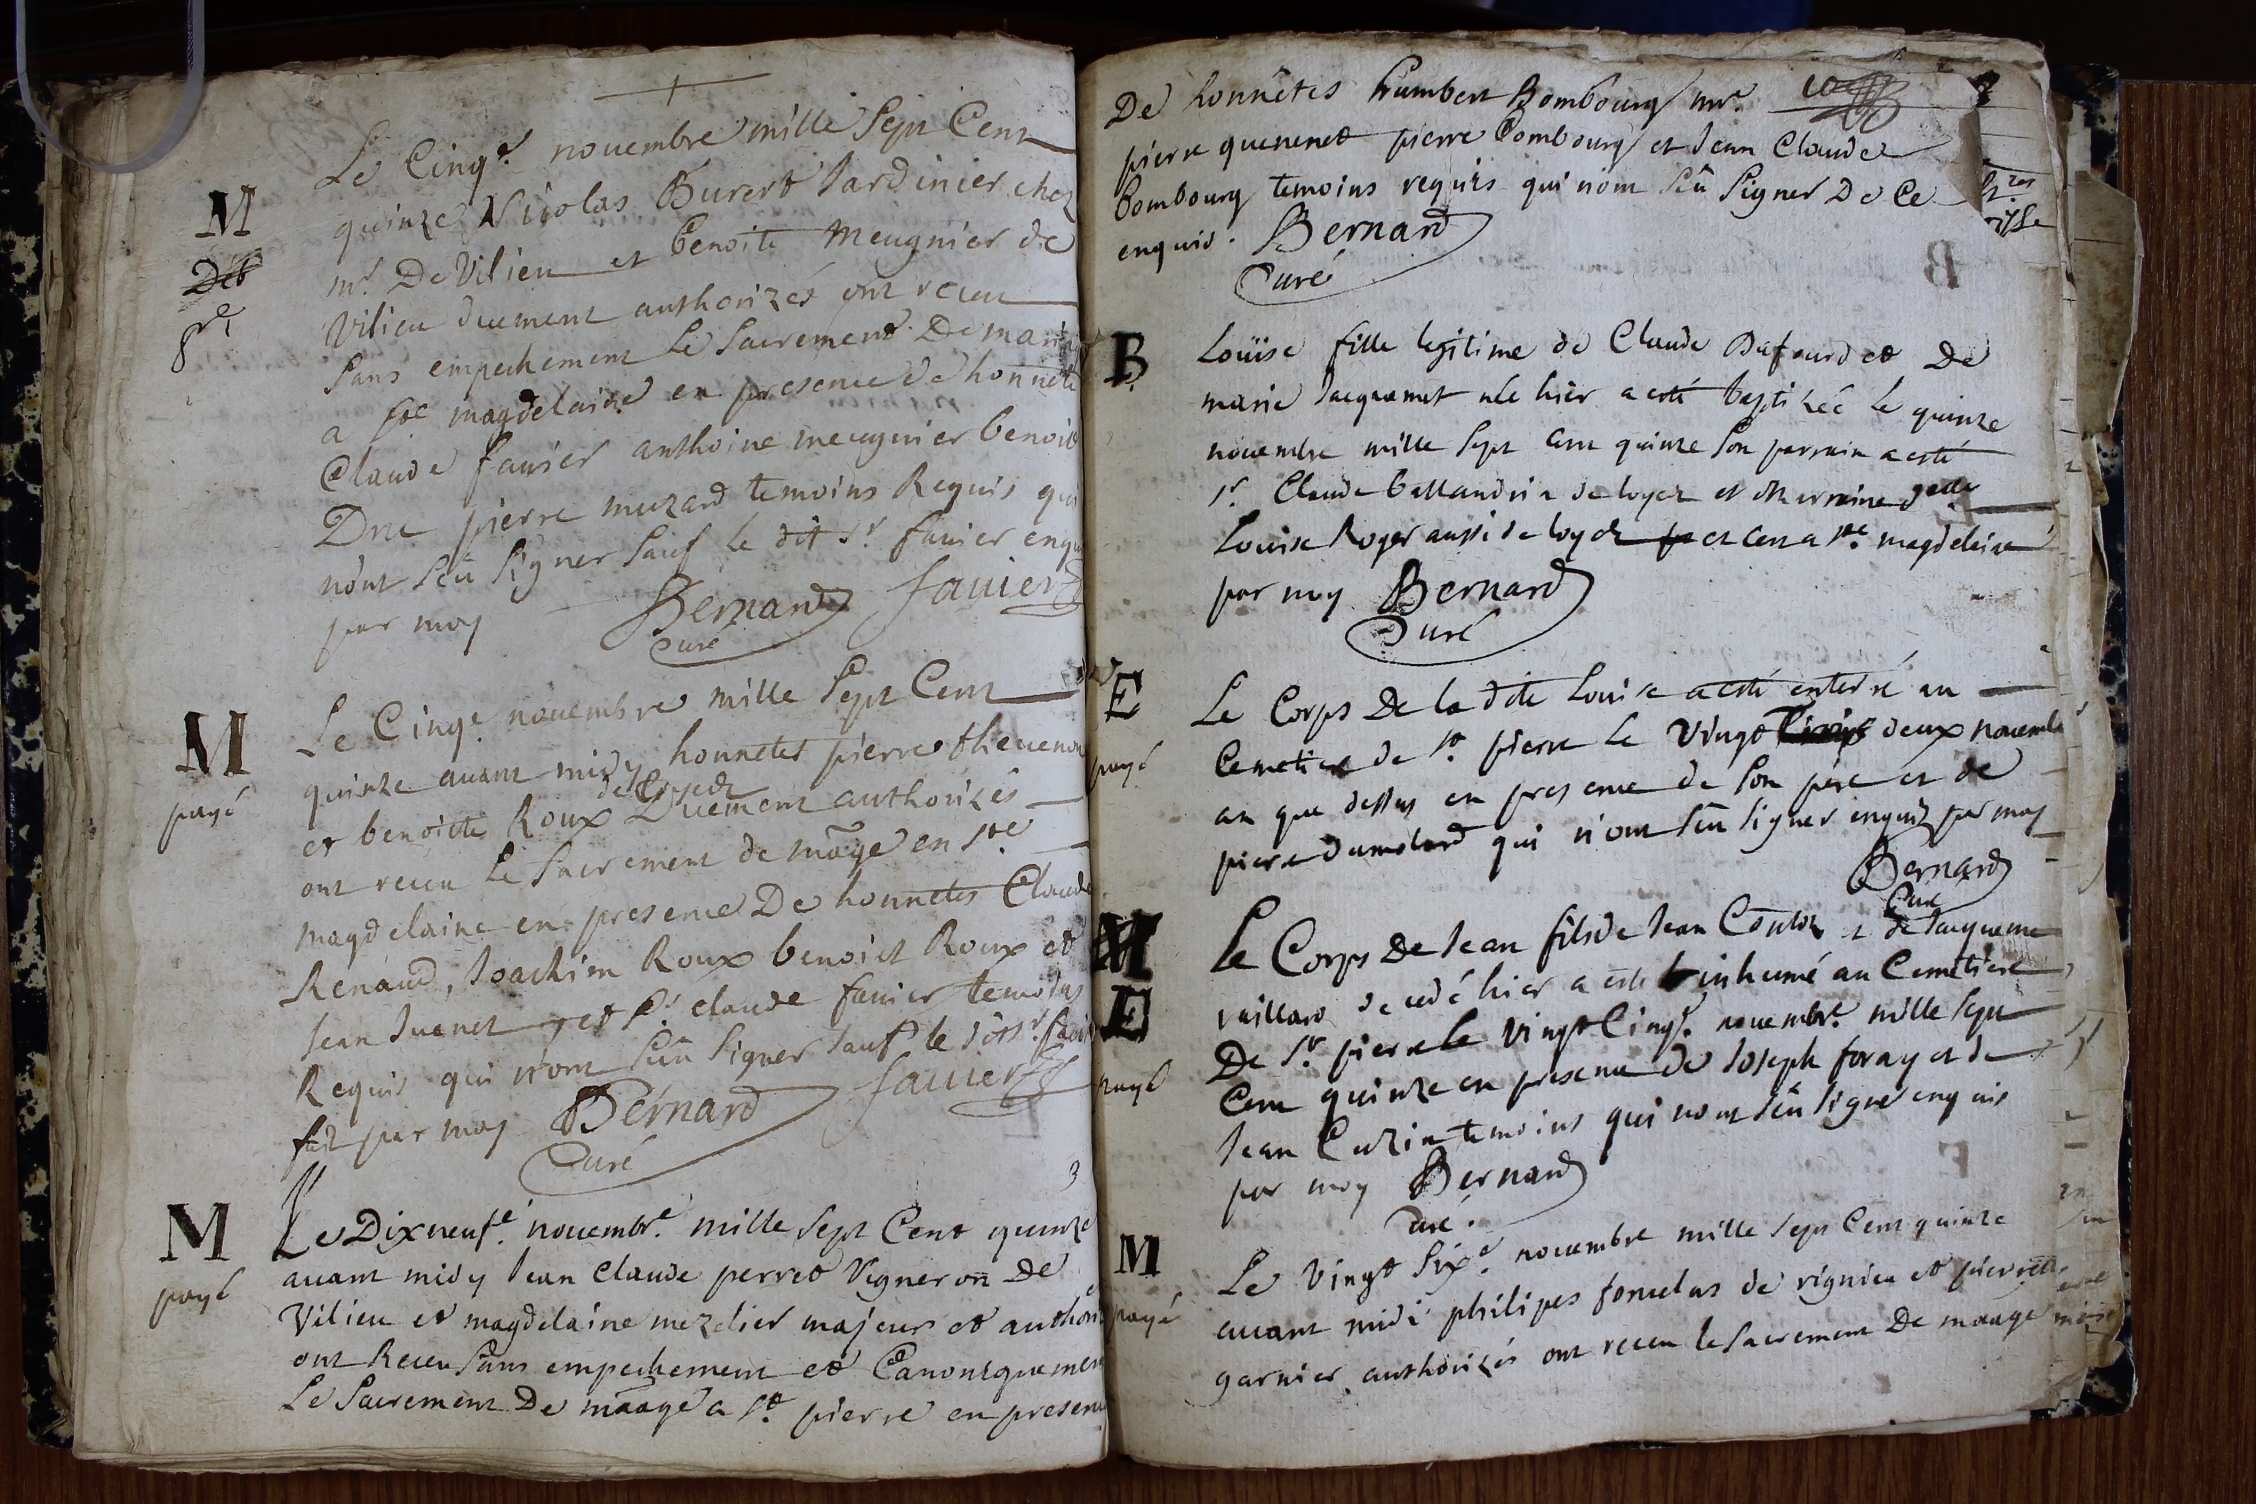 Le Cinq.e novembre mille Sept Cent
M
quinze Nicolas Burert Jardinier chez
mr. De Vilieu et benoite Meugnier de
Vilieu duement authorizés ont receu
Sans empechement Le Sacrement De maria
a ste magdelaine en presence de honnete
Claude favier anthoine meugnier benoit
Duc pierre muzard temoins Requis qui
nont Sçû Signer Sauf le dit Sr. favier enqu
par moy Bernard favier
Curé
M
payé
Le Cinq.e novembre mille Sept Cent
quinze avant midy honnetes pierre thevenon
et benoicte Roux Duement authorizés
ont receu Le Sacrement de mage en ste
magdelaine en presence De honnetes Claude
Renaud, Joachim Roux benoict Roux et
Jean Juenet et Sr. claude favier temoins
Requis qui n'ont sçû Signer Sauf le dit sr. favi
fait par moy Bernard favier
Curé
3
M
payé
Le Dixneuf.e novembr.e mille Sept Cent quinze
avant midy Jean Claude perret Vigneron De
Vilieu et magdelaine mezelier majeurs et authori
ont Receu Sans empechement et Canoniquement
Le Sacrement De maage a St pierre en presence
De honnêtes humbert Bombourg mr.
pierre quenenet pierre bombourg et Jean Claude
bombourg temoins requis qui n'ont Sçû Signer De Ce
enquis. Bernard
Curé
B
Loüise fille legitime de Claude Dufourd et De
marie Jacquemet née hier a esté baptizée le quinze
novembre mille Sept cent quinze Son parrain a esté
sr. Claude ballandrin de loyet et marraine
Louise Roger aussi de loyet et ce a ste. magdelaine
par moy Bernard
Curé
E
payé
Le Corps De la dite Louise a esté enterré au
Cemetiere de St. pierre Le Vingt deux novembre
an que dessus en presence de Son père et de
piere dumolard qui n'ont Sçû Signer enquis par moy
Bernard
Curé
E
payé
Le Corps De Jean fils de Jean et de Jacqueme
vaillard decedé hier a esté inhumé au Cemetiere
De St. pierre le vingt Cinq.e novembr.e mille Sept
Cent quinze en presence de Joseph foray et de
Jean Cuzin temoins qui n'ont sçû Signé enquis
par moy Bernard
Curé.
M
payé
Le Vingt Six.e novembre mille Sept Cent quinze
avant midi philipes de rignieu et pierrette
garnier authorizés ont receu le Sacrement De maage